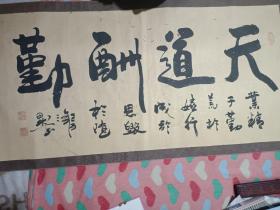 天道酬勤
業精
于勤
荒於
嬉行
成於
思毀
於隨